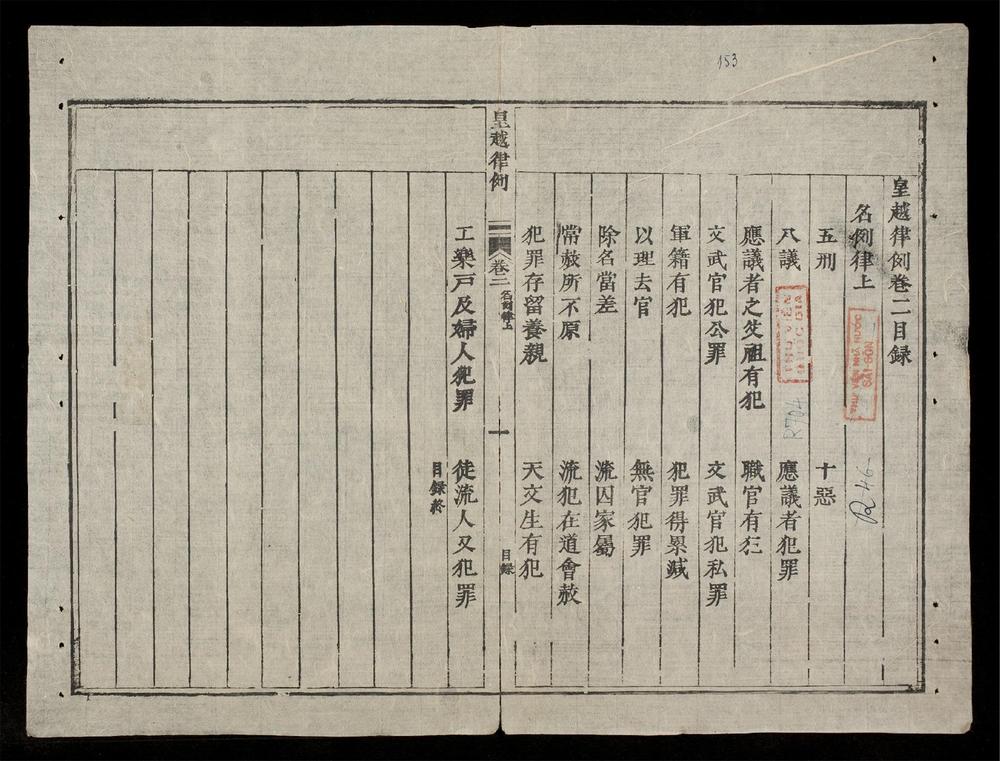 153
皇越律例卷二目録
名例律上
五刑 十惡
八議 應議者犯罪
應議者之父祖有犯 職官有犯
文武官犯公罪 文武官犯私罪
軍籍有犯 犯罪得累減
以理去官 無官犯罪
除名當差 流囚家屬
常赦所不原 流犯在道會赦
犯罪存留養親 天文生有犯
皇越律例 卷二 名例律上 一 目録
工樂戸及婦人犯罪 徒流人又犯罪
目録終
THƯ VIỆN NHÀ NƯỚC
SAIGON
THƯ VIỆN
QUỐC GIA
R704